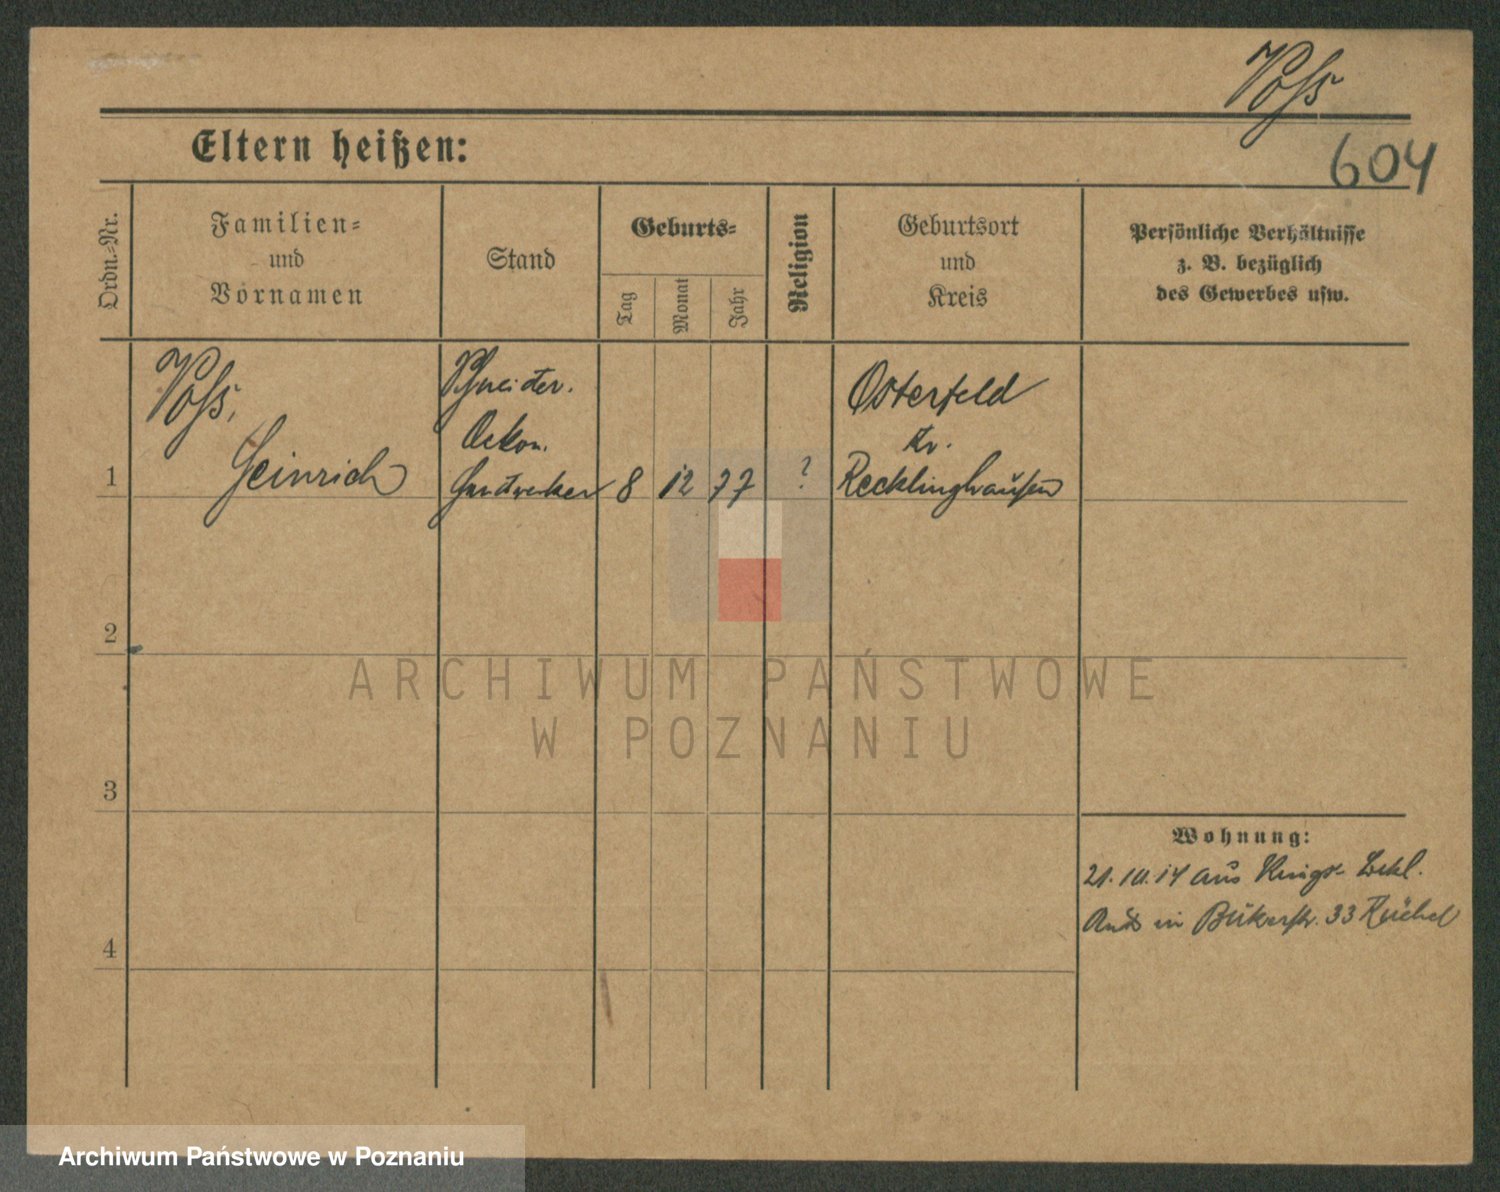 Voß
604
Eltern heißen:
Ordn.-Nr.
Familien-
und
Vornamen
Stand
Geburts-
Tag
Monat
Jahr
Religion
Geburtsort
und
Kreis
Persönliche Verhältnisse
z. B. bezüglich
des Gewerbes usw.
1
Voß,
Heinrich
Schneider.
Oekon.
Handwerker
8
12
77
?
Osterfeld
Kr.
Recklinghausen
2
3
4
Wohnung:
21.10.14 aus Bekl.
Amt in Bukerstr. 33
ARCHIWUM PAŃSTWOWE
W POZNANIU
Archiwum Państwowe w Poznaniu